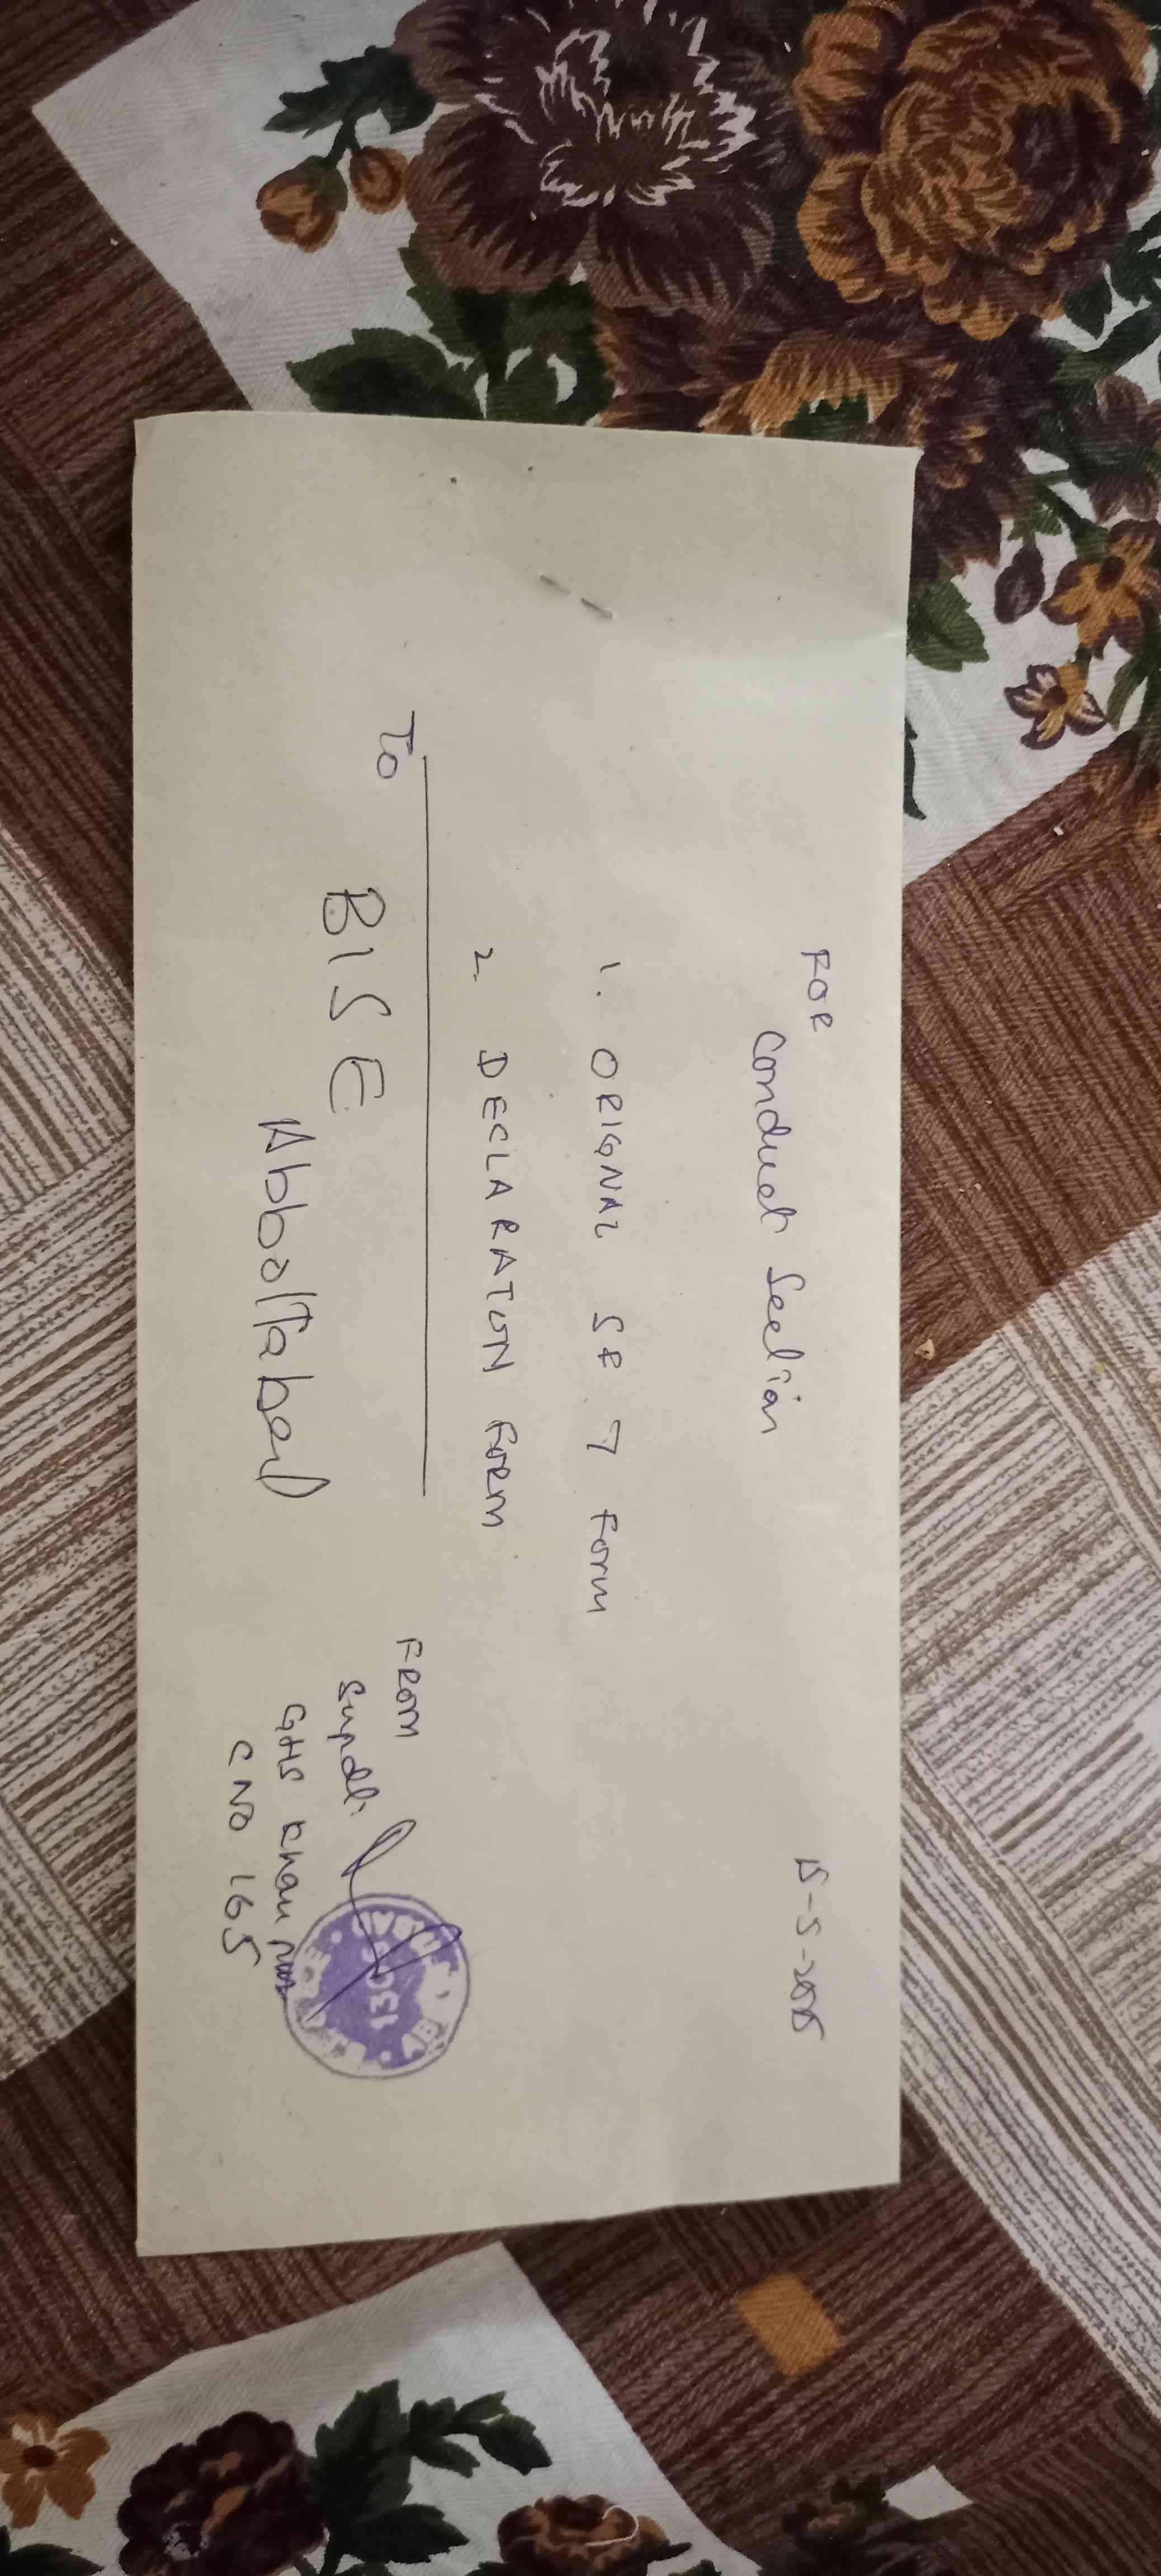 15-5-2025
FOR
Conduct Section
1. ORIGNAL SE 7 Form
2. DECLARATION FORM
To
BISE
Abbottabad
FROM
Supdt:
GHS Khanpur
C NO 165